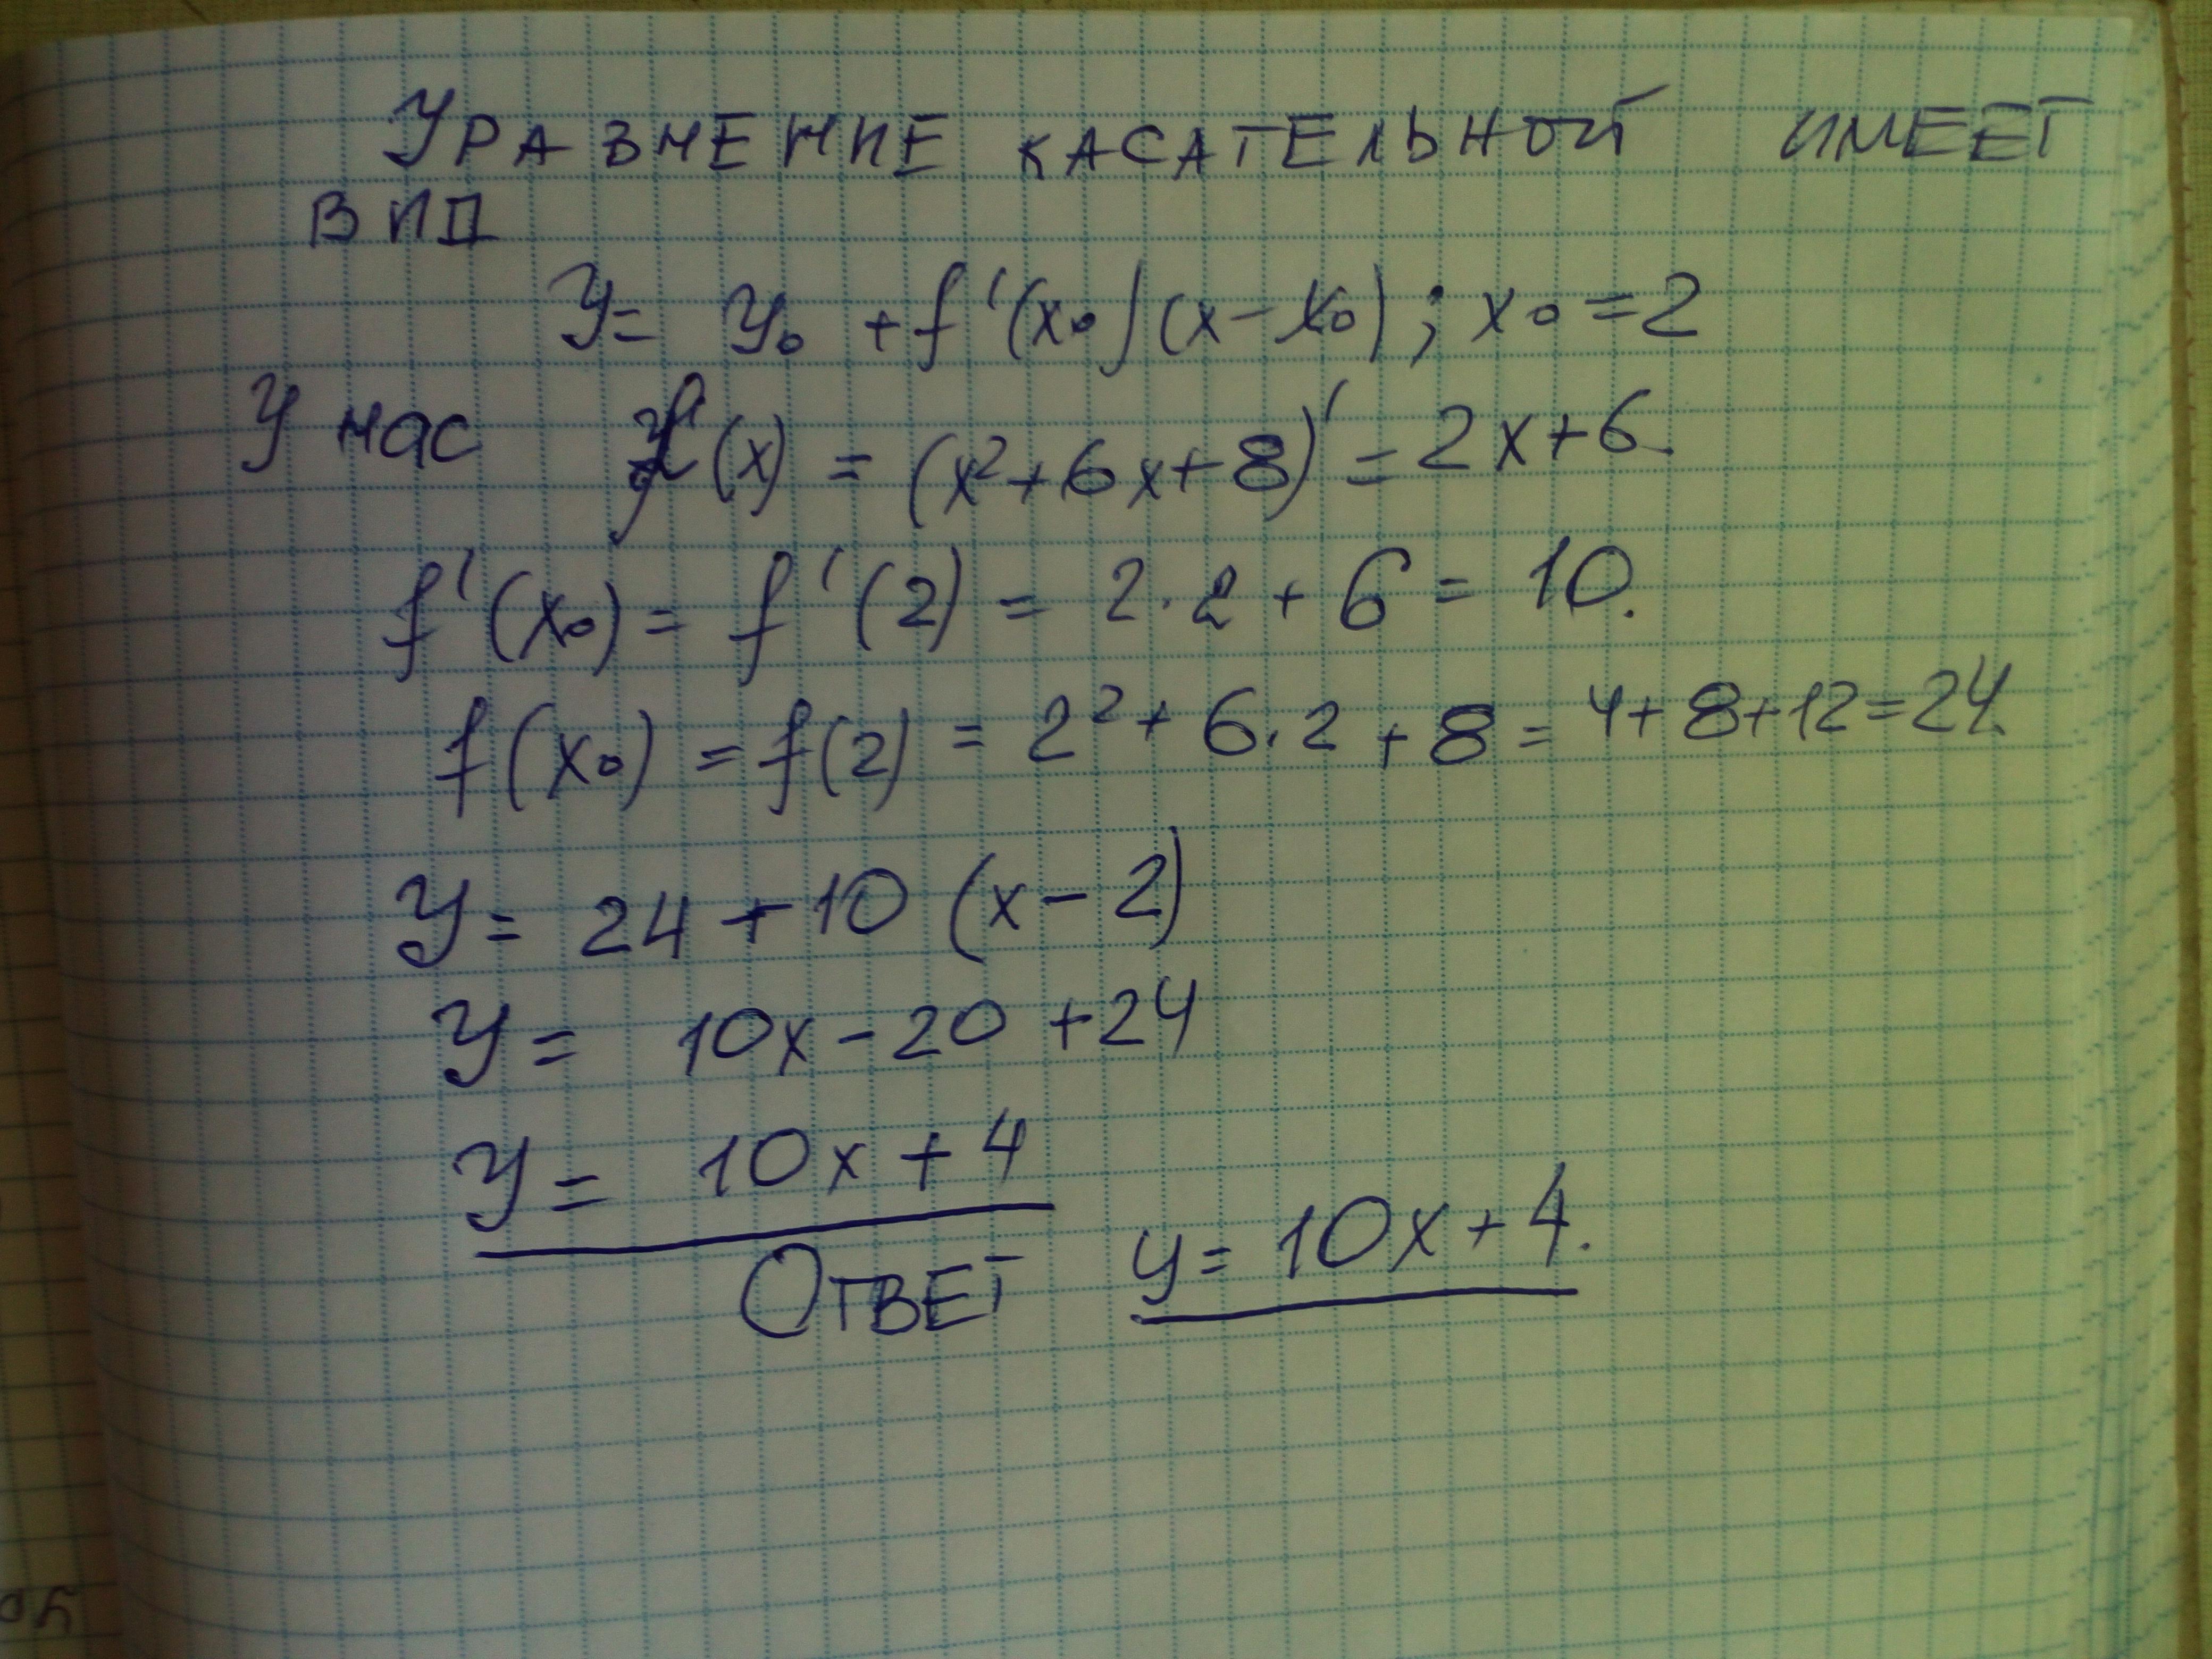 Уравнение касательной имеет
вид
y = y₀ + f'(x₀)(x - x₀); x₀ = 2
У нас f'(x) = (x² + 6x + 8)' = 2x + 6.
f'(x₀) = f'(2) = 2·2 + 6 = 10.
f(x₀) = f(2) = 2² + 6·2 + 8 = 4 + 8 + 12 = 24.
y = 24 + 10 (x - 2)
y = 10x - 20 + 24
y = 10x + 4
Ответ y = 10x + 4.